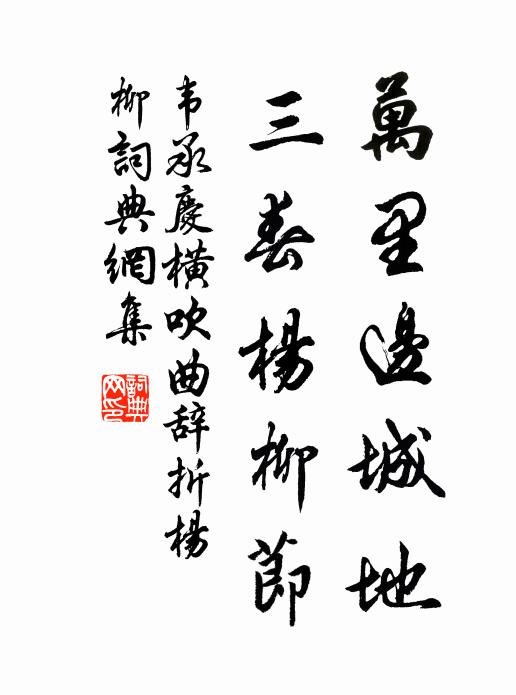 萬里邊城地
三春楊柳節
韦承慶橫吹曲辞折楊
柳詞典網集
詞典
网印